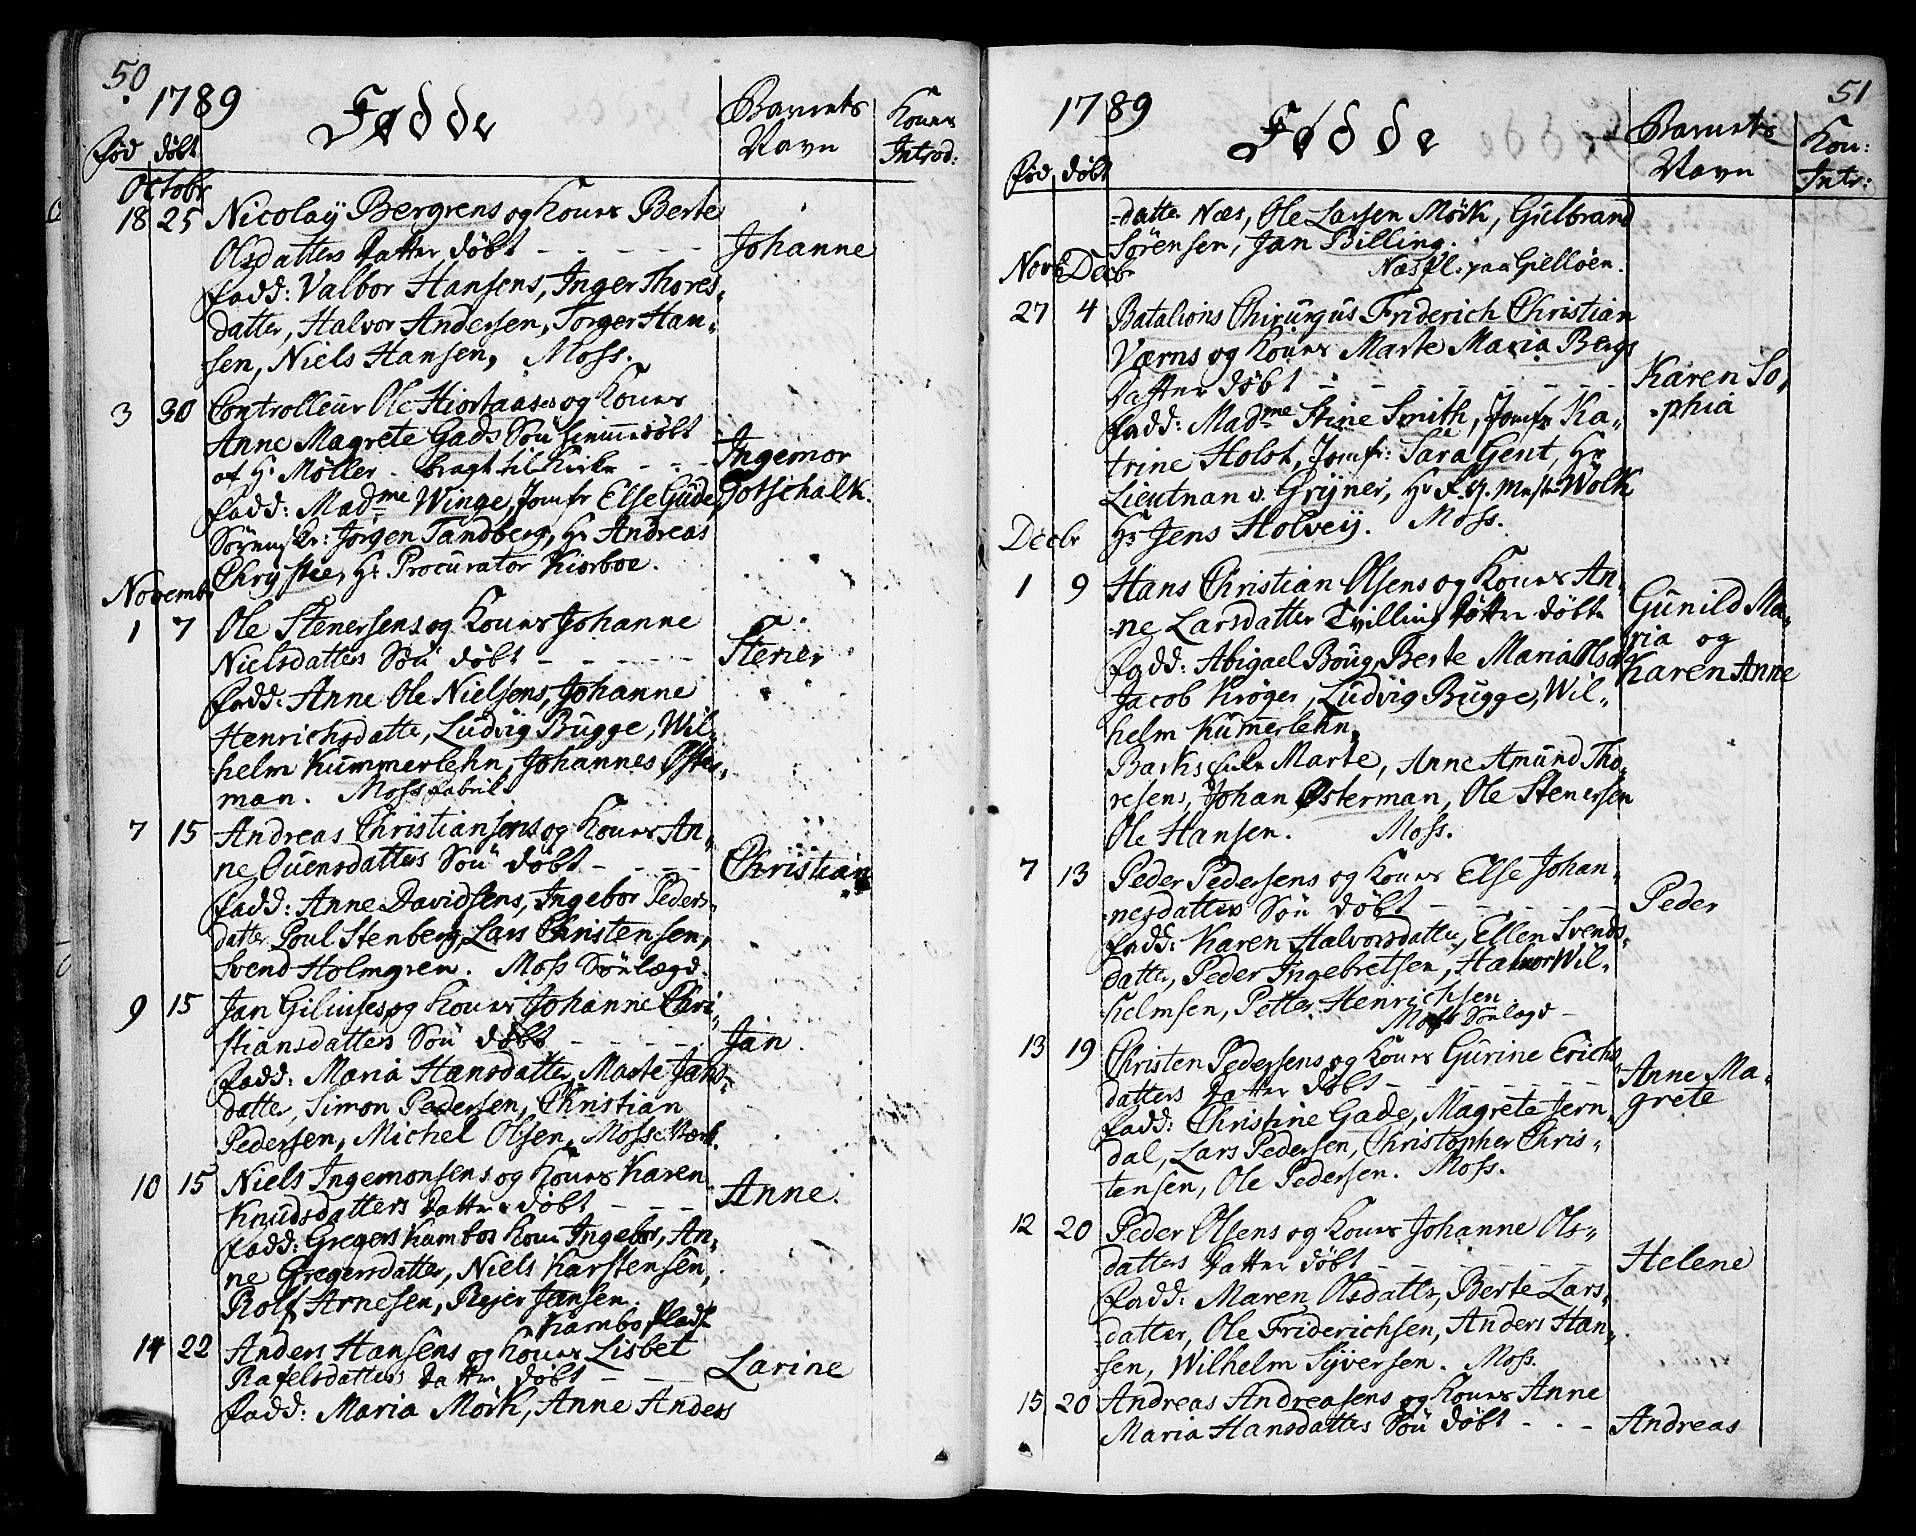 50
1789 Fødde Barnets Navn Konens Introd:
Fød døbt
Octobr
18 25 Nicolaÿ Bergrens og Kones Berte
Olsdatters Datter døbt - - - - Johanne
Fadd: Valbor Hansens, Inger Thores-
datter, Halvor Andersen, Torger Han-
sen, Niels Hansen, Moss.
3 30 Controlleur Ole Hiortaases og Kones
Anne Magrete Gads Søn hiemmedøbt
af Hr Møller - bragt til Kirke - - - Ingemor
Fadd: Madme Winge, Jomfr Else Gude, Gotschalk.
Sorenskr: Jørgen Tandberg, Hr Andreas
Chrystie, Hr Procurator Kiørboe.
Novembr
1 7 Ole Stenersens og Kones Johanne
Nielsdatters Søn døbt - - - - - Stener
Fadd: Anne Ole Nielsens, Johanne
Henrichsdatte, Ludvig Bugge, Wil-
helm Kummerlehn, Johannes Øster-
man. Moss fabrik
7 15 Andreas Christiansens og Kones An-
ne Quensdatters Søn døbt - - - - Christian
Fadd: Anne Davidsens, Ingebor Peders-
datter Poul Stenberg, Lars Christensen,
Svend Holmgren. Moss Sønlægd.
9 15 Jan Giliuses og Kones Johanne Chri-
stiansdatters Søn døbt - - - - Jan.
Fadd: Maria Hansdatter, Marte Jans-
datter, Simon Pedersen, Christian
Pedersen, Michel Olsen, Mosse Værk.
10 15 Niels Ingemonsens og Kones Karen
Knudsdatters Datter døbt - - - Anne.
Fadd: Gregers Kambos Kone Ingebor, An-
ne Gregersdatter, Niels Karstensen,
Rolf Arnesen, Rejer Jensen.
Kambo Plads
14 22 Anders Hansens og Kones Lisbet
Rafelsdatters Datter døbt - - - Larine
Fadd: Maria Mørk, Anne Anders
51
1789 Fødde Barnets Navn Kon: Intr:
Fød døbt
-datter Næs, Ole Larsen Mørk, Gulbrand
Sørensen, Jan Billing.
Næs Pl. paa Gielløen.
Novb Decbr
27 4 Batalions Chirurgus Friderich Christian
Værns og Kones Marte Maria Bergs
Datter døbt - - - - - - - Karen So-
Fadd: Madme Stine Smith, Jomfr Ka- -phia
trine Holst, Jomfr: Sara Gent, Hr
Lieutnan v. Gryner, Hr Wolk
Hr Jens Holveÿ. Moss.
Decbr
1 9 Hans Christian Olsens og Kones An-
ne Larsdatter Tvilling Døttre døbte Gunild Ma-
Fadd: Abigael Boug, Berte Maria Olsd. ria og
Jacob Krøger, Ludvig Bugge, Wil- Karen Anne
helm Kumerlehn,
Marte, Anne Amund Tho-
resens, Johan Østerman, Ole Stenersen
Ole Hansen. Moss.
7 13 Peder Pedersens og Kones Else Johan-
nesdatters Søn døbt - - - - - Peder
Fadd: Karen Halvorsdatte, Ellen Svends-
datter, Peder Ingebretsen, Halvor Wil-
helmsen, Petter Henrichsen
Moss Sønlægd -
13 19 Christen Pedersens og Kones Gurine Erichs
datters Datter døbt - - - - - Anne Ma-
Fadd: Christine Gade, Magrete Jern grete
dal, Lars Pedersen, Christopher Chris-
tensen, Ole Pedersen. Moss.
12 20 Peder Olsens og Kones Johanne Ols-
datters Datter døbt - - - - - Helene
Fadd: Maren Olsdatter, Berte Lars-
datter, Ole Friderichsen, Anders Han-
sen, Wilhelm Syversen. Moss.
15 20 Andreas Andreasens og Kones Anne
Maria Hansdatters Søn døbt - - - Andreas